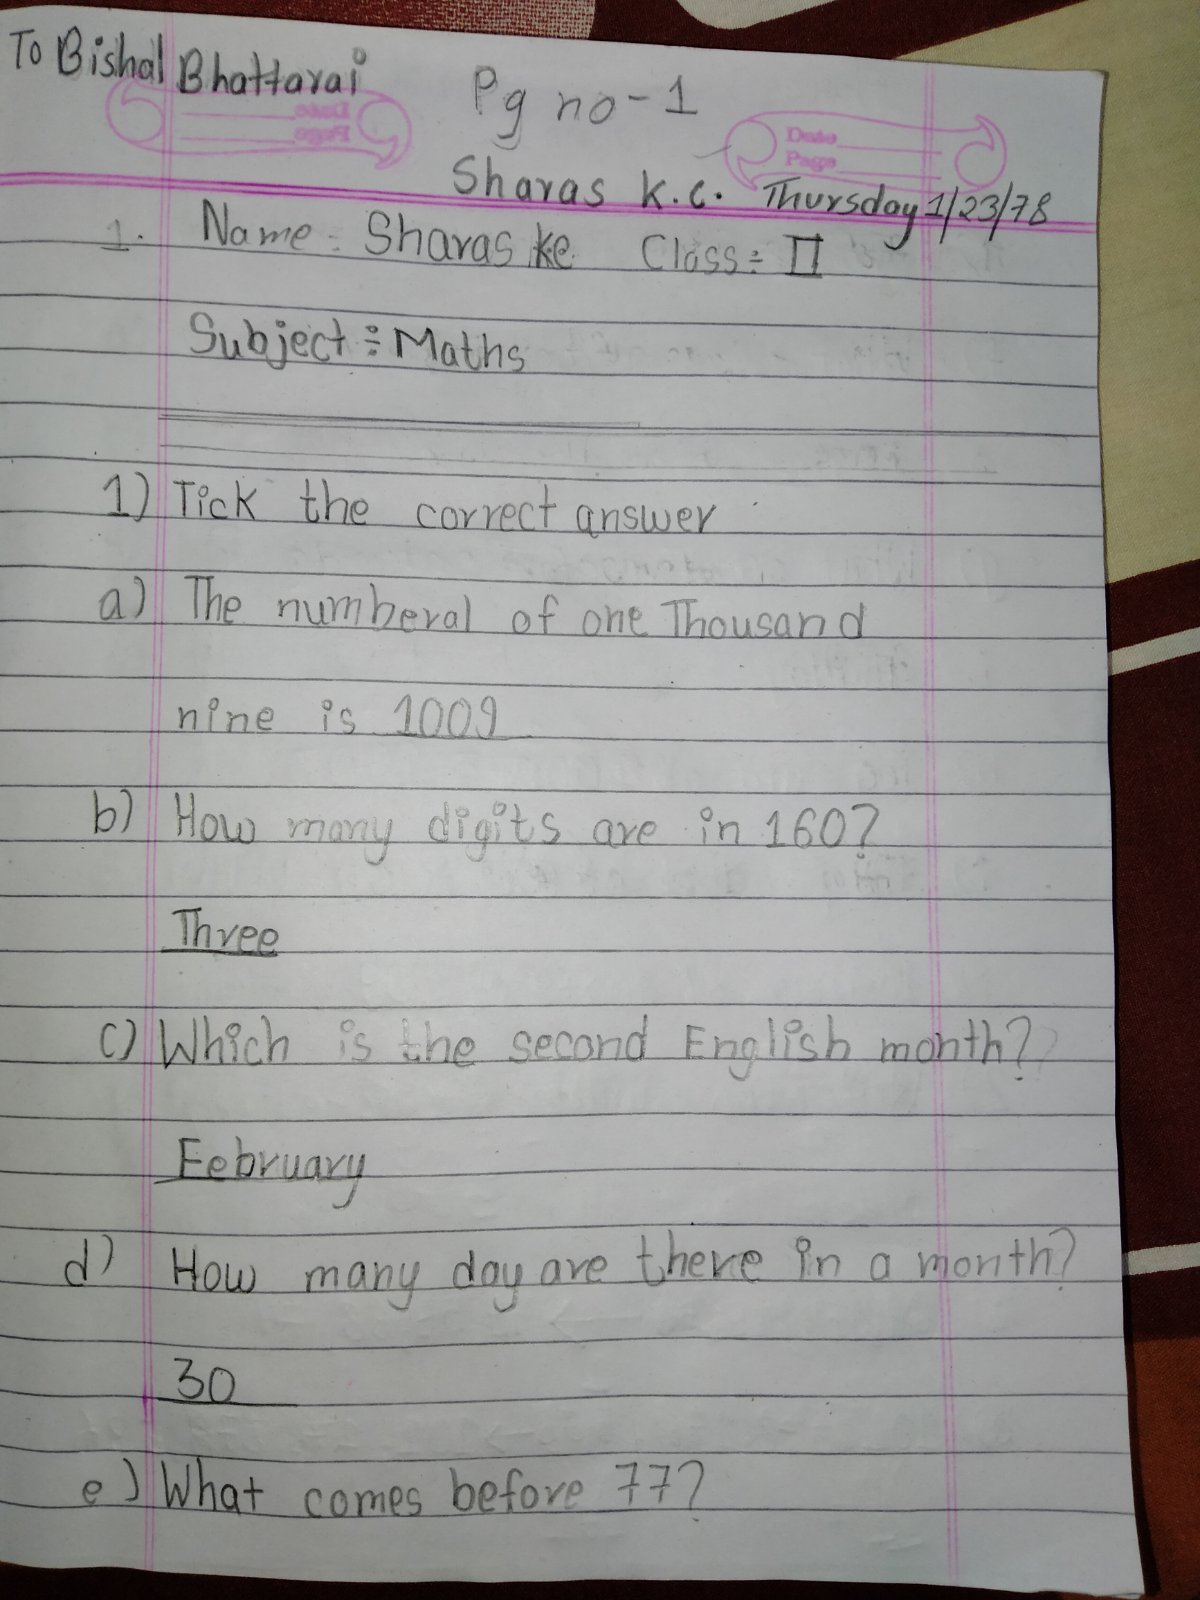 To Bishal Bhattarai
Pg no-1
Date
Page
Sharas K.C. Thursday 1/23/78
1. Name: Sharas kc Class÷ II
Subject÷ Maths
1) Tick the correct answer
a) The numberal of one Thousand
nine is 1009
b) How many digits are in 160?
Three
c) Which is the second English month?
February
d) How many day are there in a month?
30
e) What comes before 77?